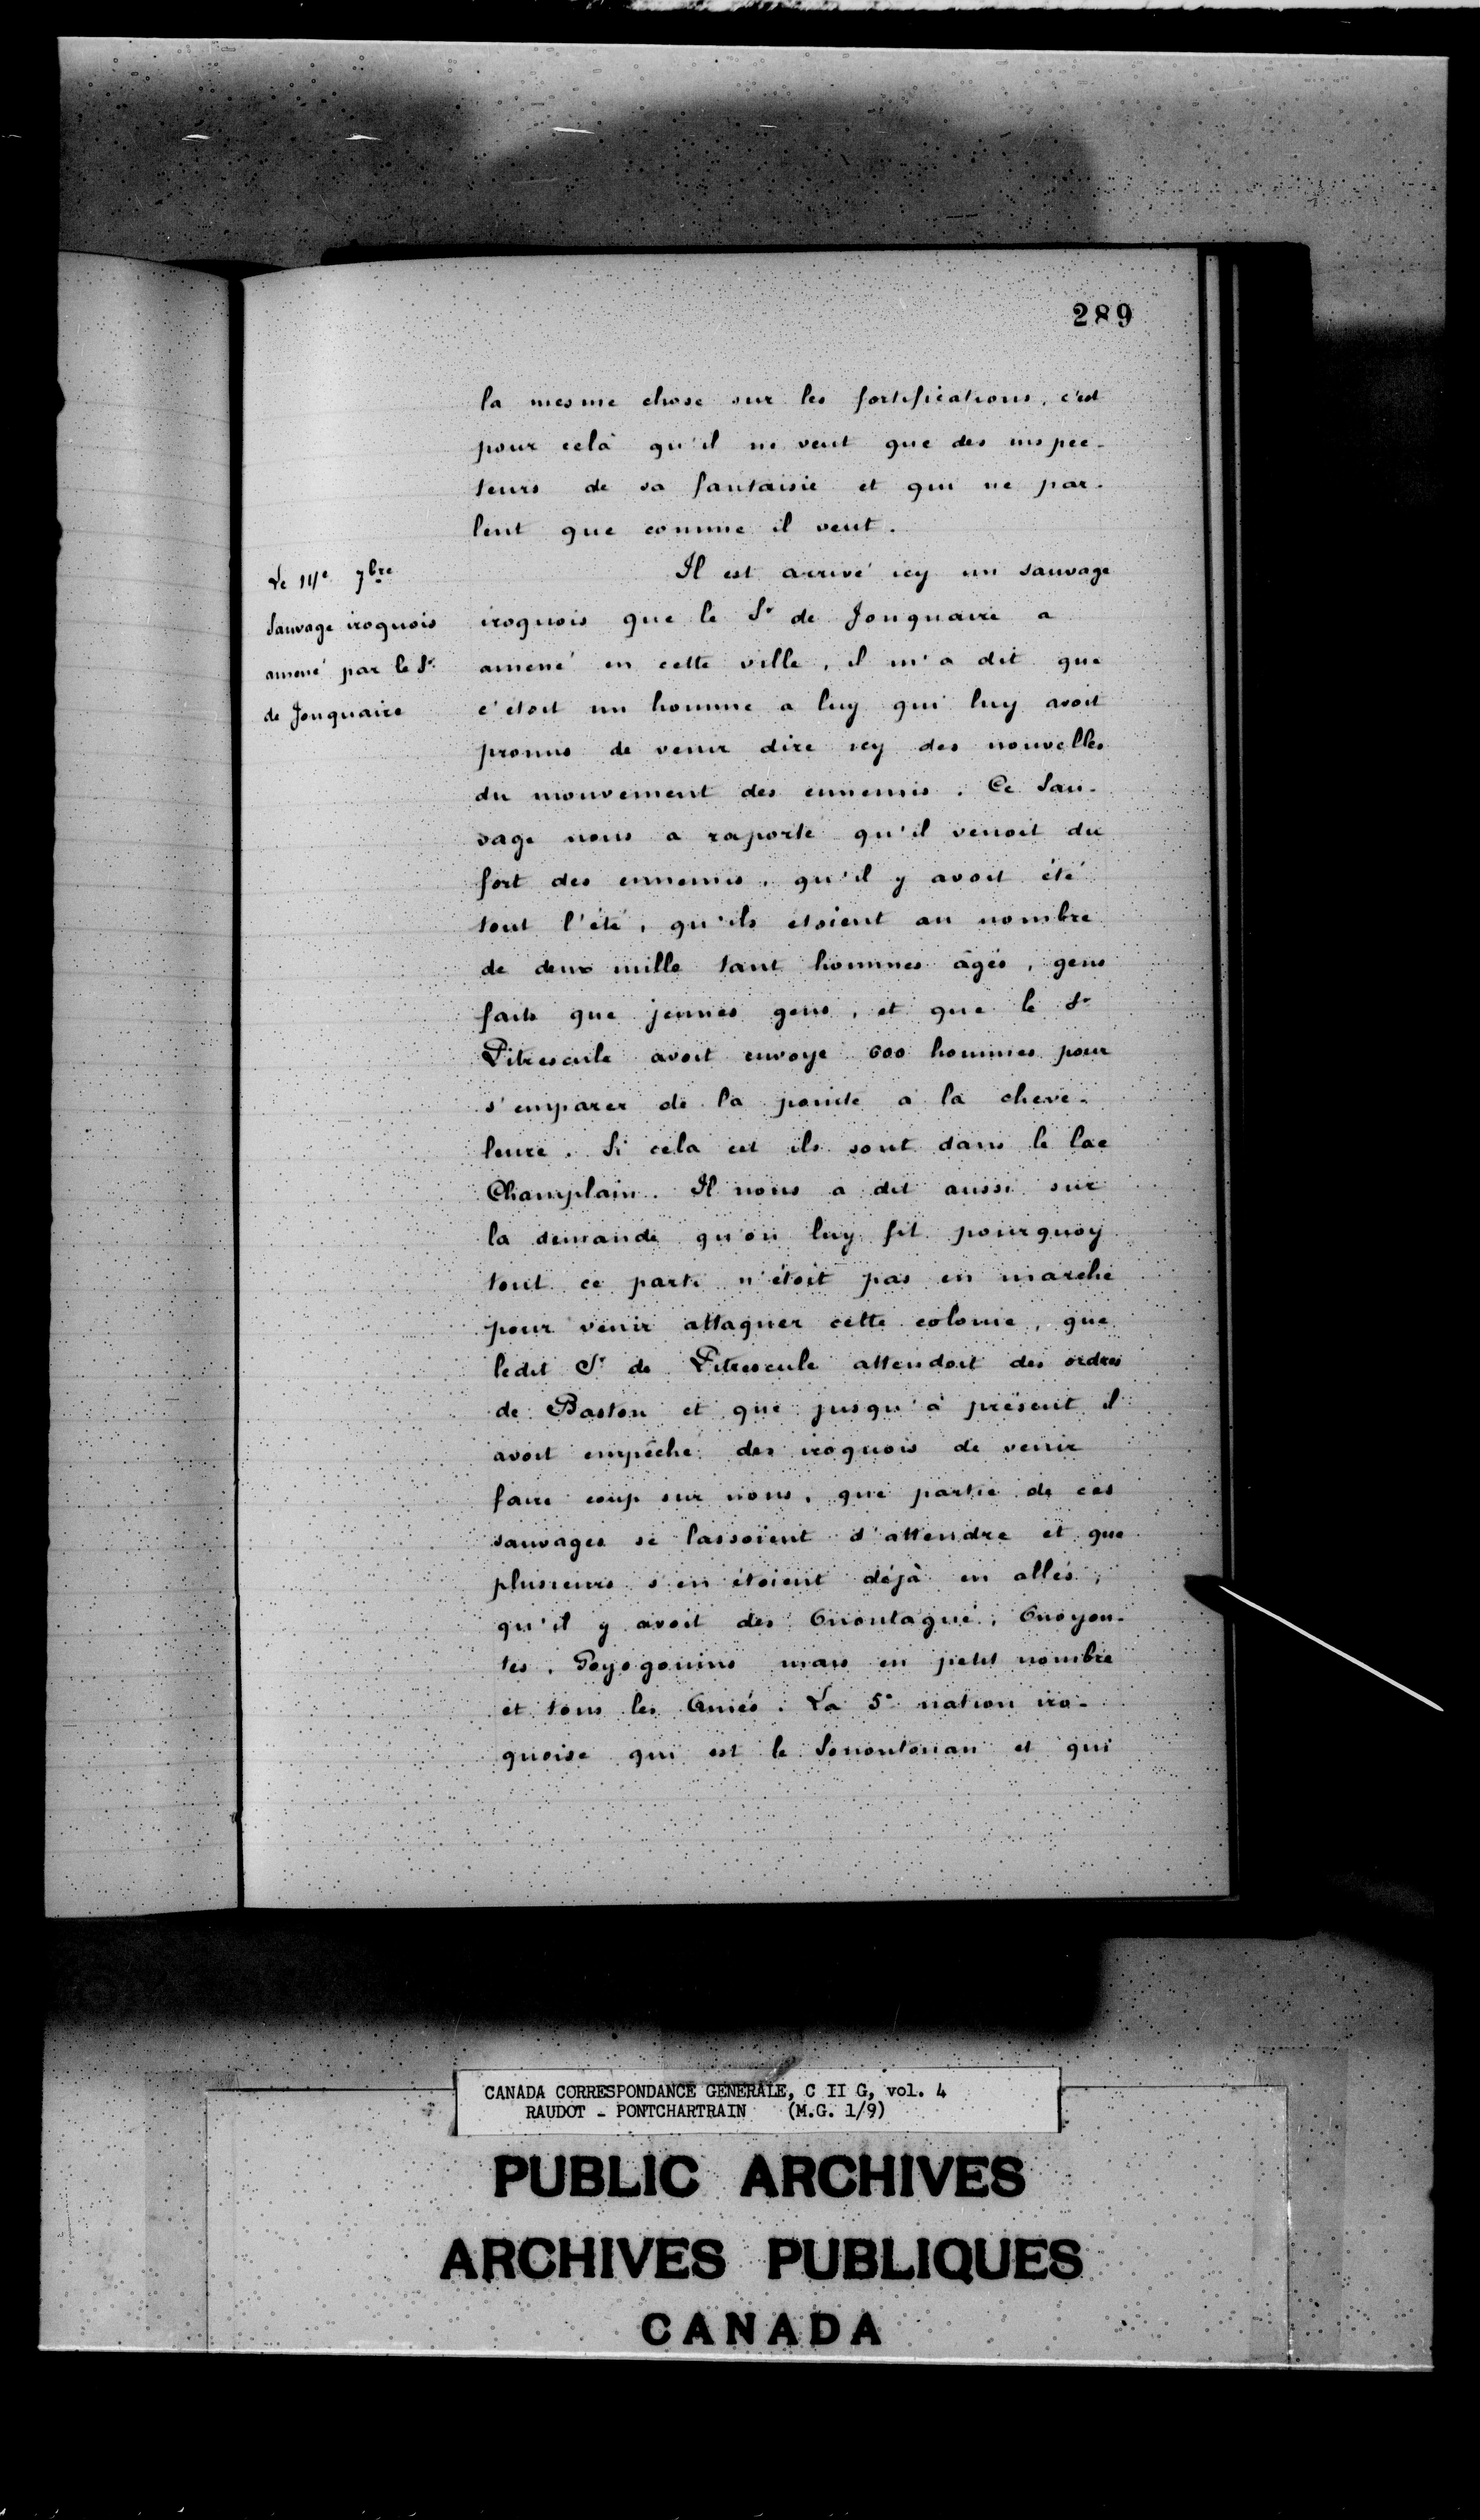 289
la mesme chose sur les fortifications, c'est
pour celà qu'il ne veut que des inspec-
teurs de sa fantaisie et qui ne par-
lent que comme il veut.
Le 7bre
Sauvage iroquois
amené par le Sr
de Jonquaire
Il est arrivé icy un sauvage
iroquois que le Sr de Jonquaire a
amené en cette ville, il m'a dit que
c'étoit un homme a luy qui luy avoit
promis de venir dire icy des nouvelles
du mouvement des ennemis. Ce Sau-
vage nous a raporté qu'il venoit du
fort des ennemis, qu'il y avoit été
tout l'été, qu'ils etoient au nombre
de deux mille tant hommes âgés, gens
faits que jeunes gens, et que le Sr
Pitrescule avoit envoyé 600 hommes pour
s'emparer de la pointe a la cheve-
leure. Si cela est ils sont dans le lac
Champlain. Il nous a dit aussi sur
la demande qu'on luy fit pourquoy
tout ce parti n'étoit pas en marche
pour venir attaquer cette colonie, que
ledit Sr de Pitrescule attendoit des ordres
de Baston et que jusqu'à présent il
avoit empêché des iroquois de venir
faire coup sur nous, que partie de ces
sauvages se lassoient d'attendre et que
plusieurs s'en étoient déjà en allés,
qu'il y avoit des Onontagué, Onoyou-
tes, Goyogouins mais en petit nombre
et tous les Aniés. La 5e nation iro-
quoise qui est le Sonontouan et qui
CANADA CORRESPONDANCE GENERALE, C II G, vol. 4
RAUDOT - PONTCHARTRAIN (M.G. 1/9)
PUBLIC ARCHIVES
ARCHIVES PUBLIQUES
CANADA